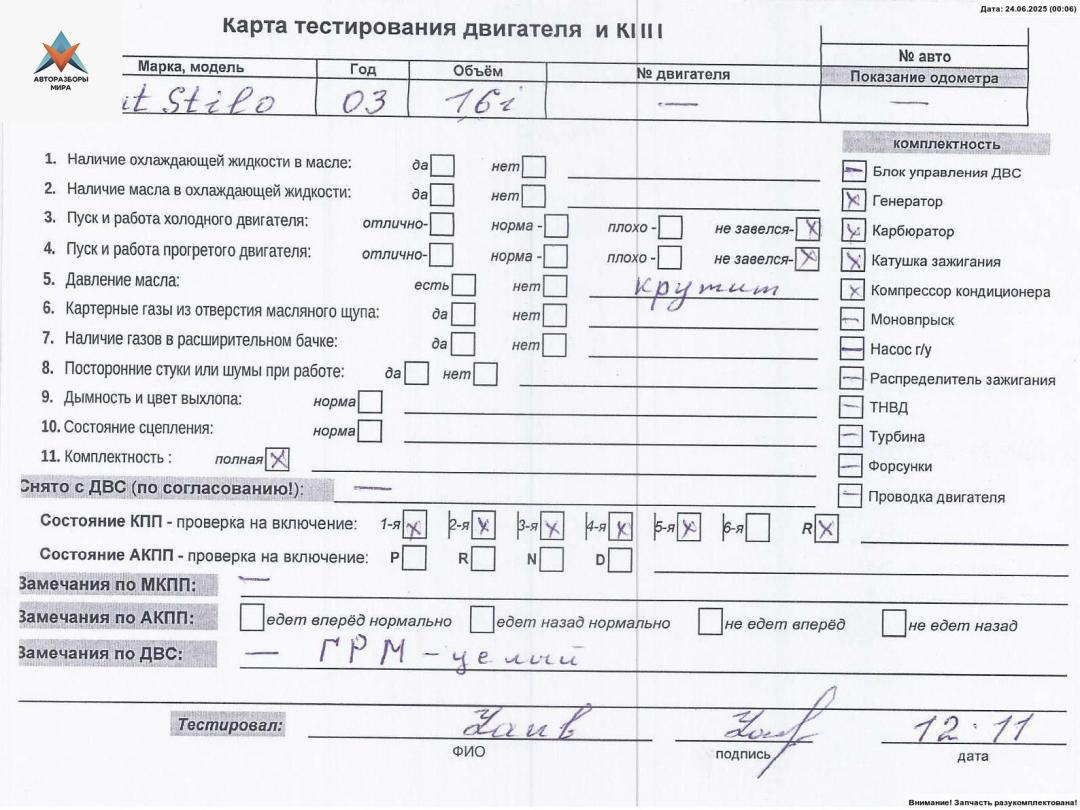 Дата: 24.06.2025 (00:06)
Карта тестирования двигателя и КПП
АВТОРАЗБОРЫ
МИРА
№ авто
Марка, модель Год Объём № двигателя Показание одометра
at Stilo 03 1,6i — —
комплектность
1. Наличие охлаждающей жидкости в масле: да нет
Блок управления ДВС
2. Наличие масла в охлаждающей жидкости: да нет
Генератор
3. Пуск и работа холодного двигателя: отлично- норма - плохо - не завелся- x
Карбюратор
4. Пуск и работа прогретого двигателя: отлично- норма - плохо - не завелся- x
Катушка зажигания
5. Давление масла: есть нет крутит
Компрессор кондиционера
6. Картерные газы из отверстия масляного щупа: да нет
Моновпрыск
7. Наличие газов в расширительном бачке: да нет
Насос г/у
8. Посторонние стуки или шумы при работе: да нет
Распределитель зажигания
9. Дымность и цвет выхлопа: норма
ТНВД
10. Состояние сцепления: норма
Турбина
11. Комплектность : полная x
Форсунки
Снято с ДВС (по согласованию!): —
Проводка двигателя
Состояние КПП - проверка на включение: 1-я x 2-я x 3-я x 4-я x 5-я x 6-я R x
Состояние АКПП - проверка на включение: P R N D
Замечания по МКПП: —
Замечания по АКПП: едет вперёд нормально едет назад нормально не едет вперёд не едет назад
Замечания по ДВС: — ГРМ - целый
Тестировал: 12:11
ФИО подпись дата
Внимание! Запчасть разукомплектована!